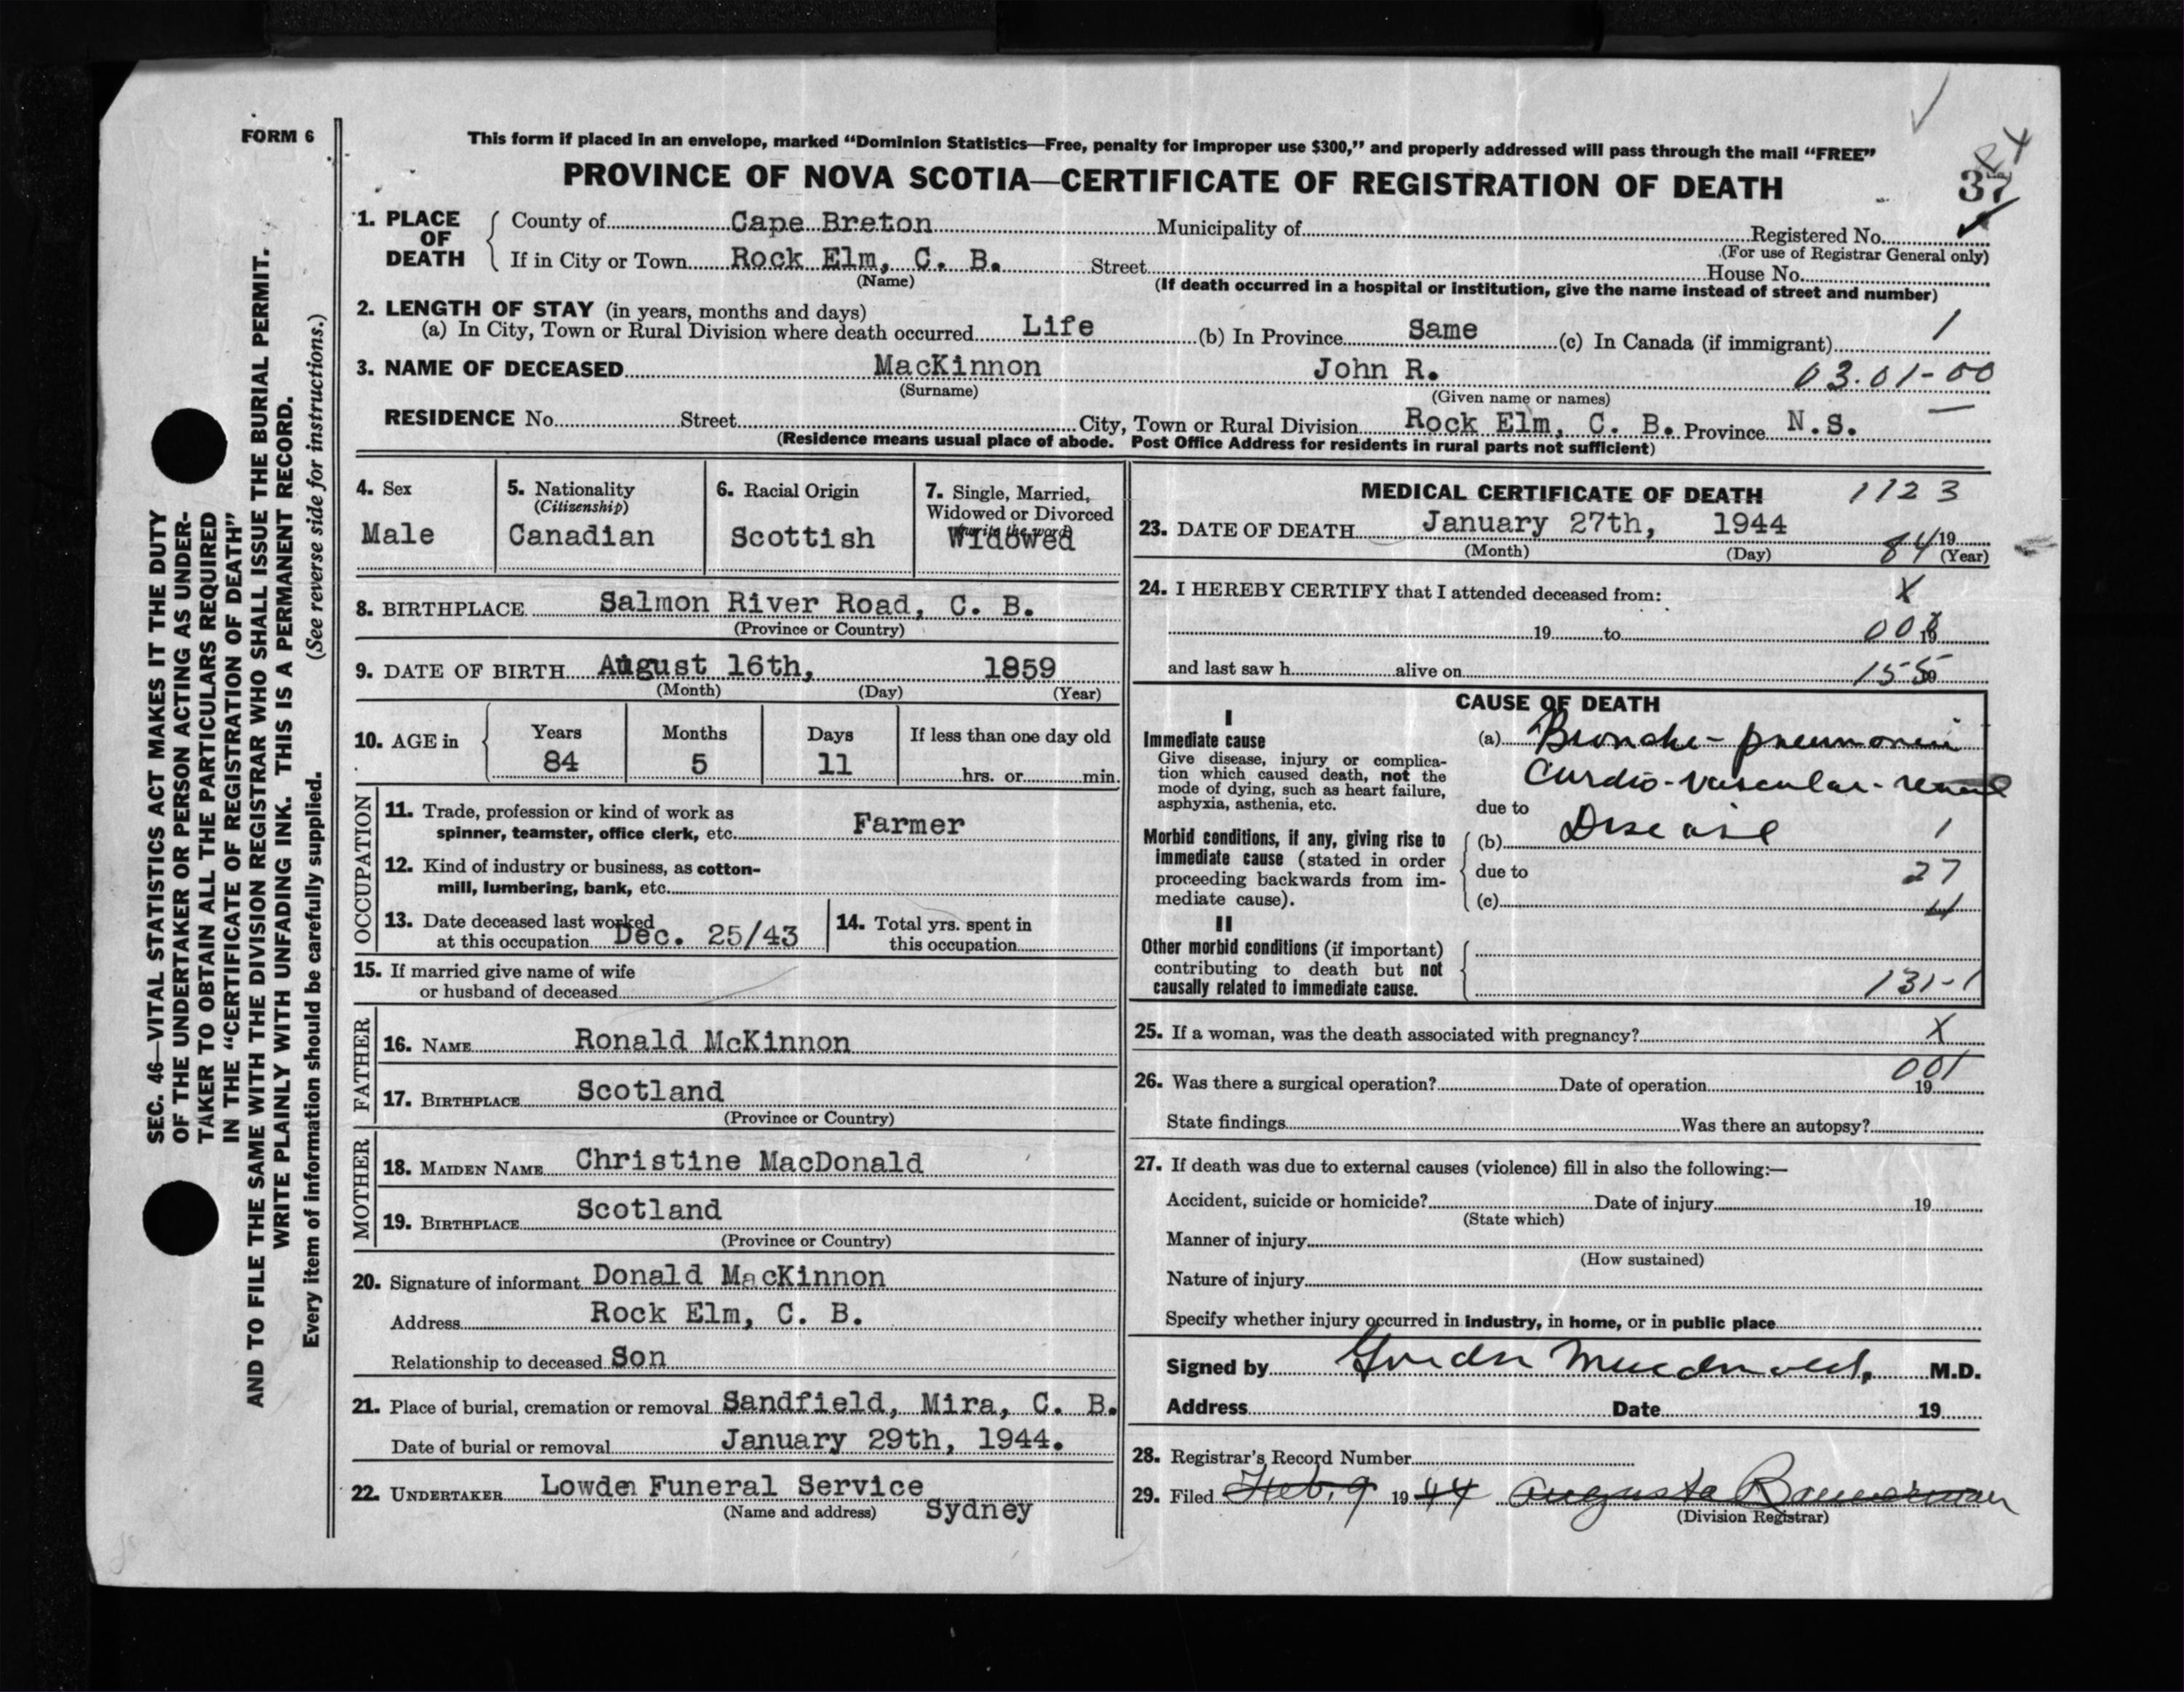 FORM 6
This form if placed in an envelope, marked “Dominion Statistics—Free, penalty for improper use $300,” and properly addressed will pass through the mail “FREE”
PROVINCE OF NOVA SCOTIA—CERTIFICATE OF REGISTRATION OF DEATH
37
SEC. 46—VITAL STATISTICS ACT MAKES IT THE DUTY
OF THE UNDERTAKER OR PERSON ACTING AS UNDER-
TAKER TO OBTAIN ALL THE PARTICULARS REQUIRED
IN THE “CERTIFICATE OF REGISTRATION OF DEATH”
AND TO FILE THE SAME WITH THE DIVISION REGISTRAR WHO SHALL ISSUE THE BURIAL PERMIT.
WRITE PLAINLY WITH UNFADING INK. THIS IS A PERMANENT RECORD.
Every item of information should be carefully supplied. (See reverse side for instructions.)
1. PLACE OF DEATH
County of Cape Breton Municipality of Registered No.
(For use of Registrar General only)
If in City or Town Rock Elm, C. B. Street House No.
(Name) (If death occurred in a hospital or institution, give the name instead of street and number)
2. LENGTH OF STAY (in years, months and days)
(a) In City, Town or Rural Division where death occurred Life (b) In Province Same (c) In Canada (if immigrant) 1
3. NAME OF DECEASED MacKinnon John R. 03.01-00
(Surname) (Given name or names)
RESIDENCE No. Street City, Town or Rural Division Rock Elm, C. B. Province N.S.
(Residence means usual place of abode. Post Office Address for residents in rural parts not sufficient)
4. Sex
Male
5. Nationality
(Citizenship)
Canadian
6. Racial Origin
Scottish
7. Single, Married,
Widowed or Divorced
(write the word)
Widowed
8. BIRTHPLACE Salmon River Road, C. B.
(Province or Country)
9. DATE OF BIRTH August 16th, 1859
(Month) (Day) (Year)
10. AGE in Years Months Days If less than one day old
84 5 11 hrs. or min.
OCCUPATION
11. Trade, profession or kind of work as
spinner, teamster, office clerk, etc. Farmer
12. Kind of industry or business, as cotton-
mill, lumbering, bank, etc.
13. Date deceased last worked
at this occupation Dec. 25/43
14. Total yrs. spent in
this occupation
15. If married give name of wife
or husband of deceased
FATHER
16. NAME Ronald McKinnon
17. BIRTHPLACE Scotland
(Province or Country)
MOTHER
18. MAIDEN NAME Christine MacDonald
19. BIRTHPLACE Scotland
(Province or Country)
20. Signature of informant Donald MacKinnon
Address Rock Elm, C. B.
Relationship to deceased Son
21. Place of burial, cremation or removal Sandfield, Mira, C. B.
Date of burial or removal January 29th, 1944.
22. UNDERTAKER Lowden Funeral Service
(Name and address) Sydney
MEDICAL CERTIFICATE OF DEATH 1123
23. DATE OF DEATH January 27th, 1944 19
(Month) (Day) (Year)
84
24. I HEREBY CERTIFY that I attended deceased from: X
19 to 19
and last saw h alive on 19
155
CAUSE OF DEATH
I
Immediate cause
Give disease, injury or complica-
tion which caused death, not the
mode of dying, such as heart failure,
asphyxia, asthenia, etc.
(a) Broncho-pneumonia
Cardio-vascular-renal
due to
Morbid conditions, if any, giving rise to
immediate cause (stated in order
proceeding backwards from im-
mediate cause).
(b) Disease 1
due to 27
(c)
II
Other morbid conditions (if important)
contributing to death but not
causally related to immediate cause.
131-1
25. If a woman, was the death associated with pregnancy? X
001
26. Was there a surgical operation? Date of operation 19
State findings Was there an autopsy?
27. If death was due to external causes (violence) fill in also the following:—
Accident, suicide or homicide? Date of injury 19
(State which)
Manner of injury
(How sustained)
Nature of injury
Specify whether injury occurred in industry, in home, or in public place
Signed by Gordon Macdonald, M.D.
Address Date 19
28. Registrar’s Record Number
29. Filed Feb. 9 1944 Augusta Bannerman
(Division Registrar)